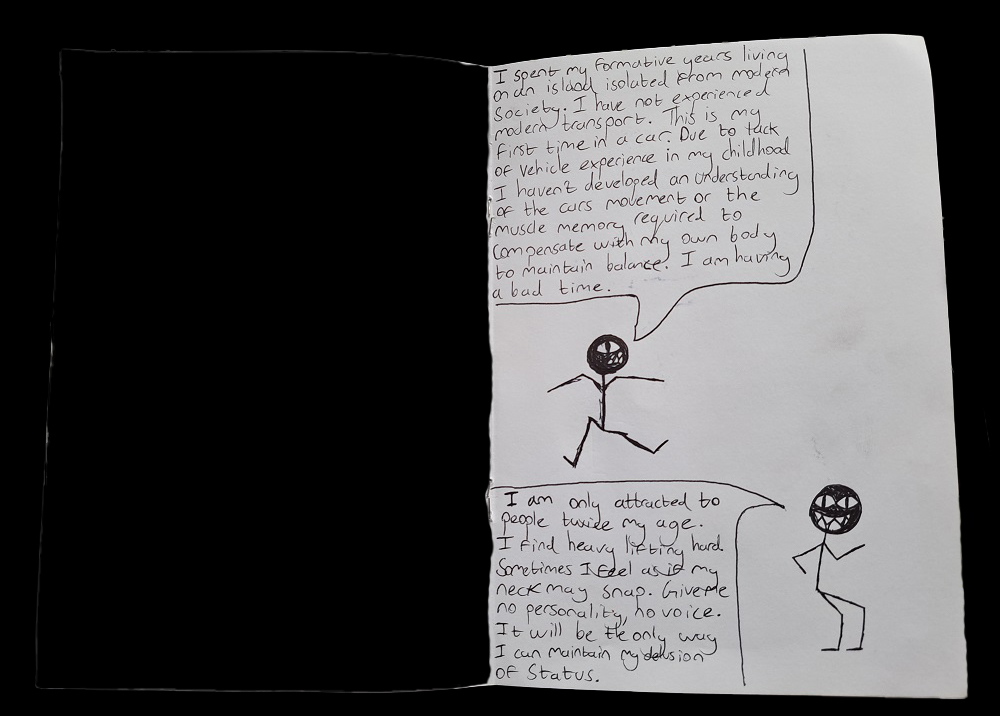 I spent my formative years living
on an island isolated from modern
Society. I have not experienced
modern transport. This is my
first time in a car. Due to lack
of vehicle experience in my childhood
I haven't developed an understanding
of the cars movement or the
muscle memory required to
compensate with my own body
to maintain balance. I am having
a bad time.
I am only attracted to
people twice my age.
I find heavy lifting hard.
Sometimes I feel as if my
neck may snap. Give me
no personality, no voice.
It will be the only way
I can maintain my delusion
of Status.